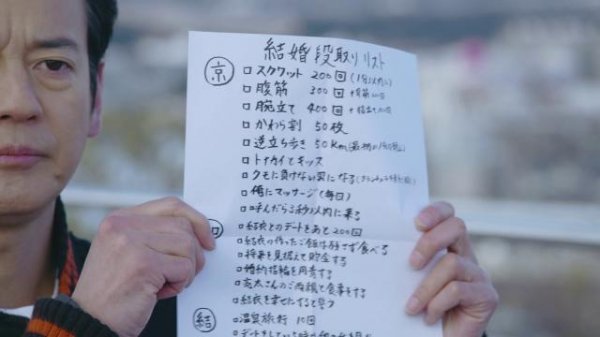 結婚段取りリスト
京
□スクワット 200回(1分以内に)
□腹筋 300回
□腕立て 400回
□かわら割 50枚
□逆立ち歩き 50Km
□トカイカイとキッス
□クモに負けない男になる
□俺にマッサージ(毎日)
□呼んだら3秒以内に来る
□結衣とのデートをあと200回
□結衣の作ったご飯は残さず食べる
□将来を見据えて貯金する
□婚約指輪を用意する
□亮太さんのご両親と食事をする
□結衣を幸せにすると誓う
結
□温泉旅行 10回